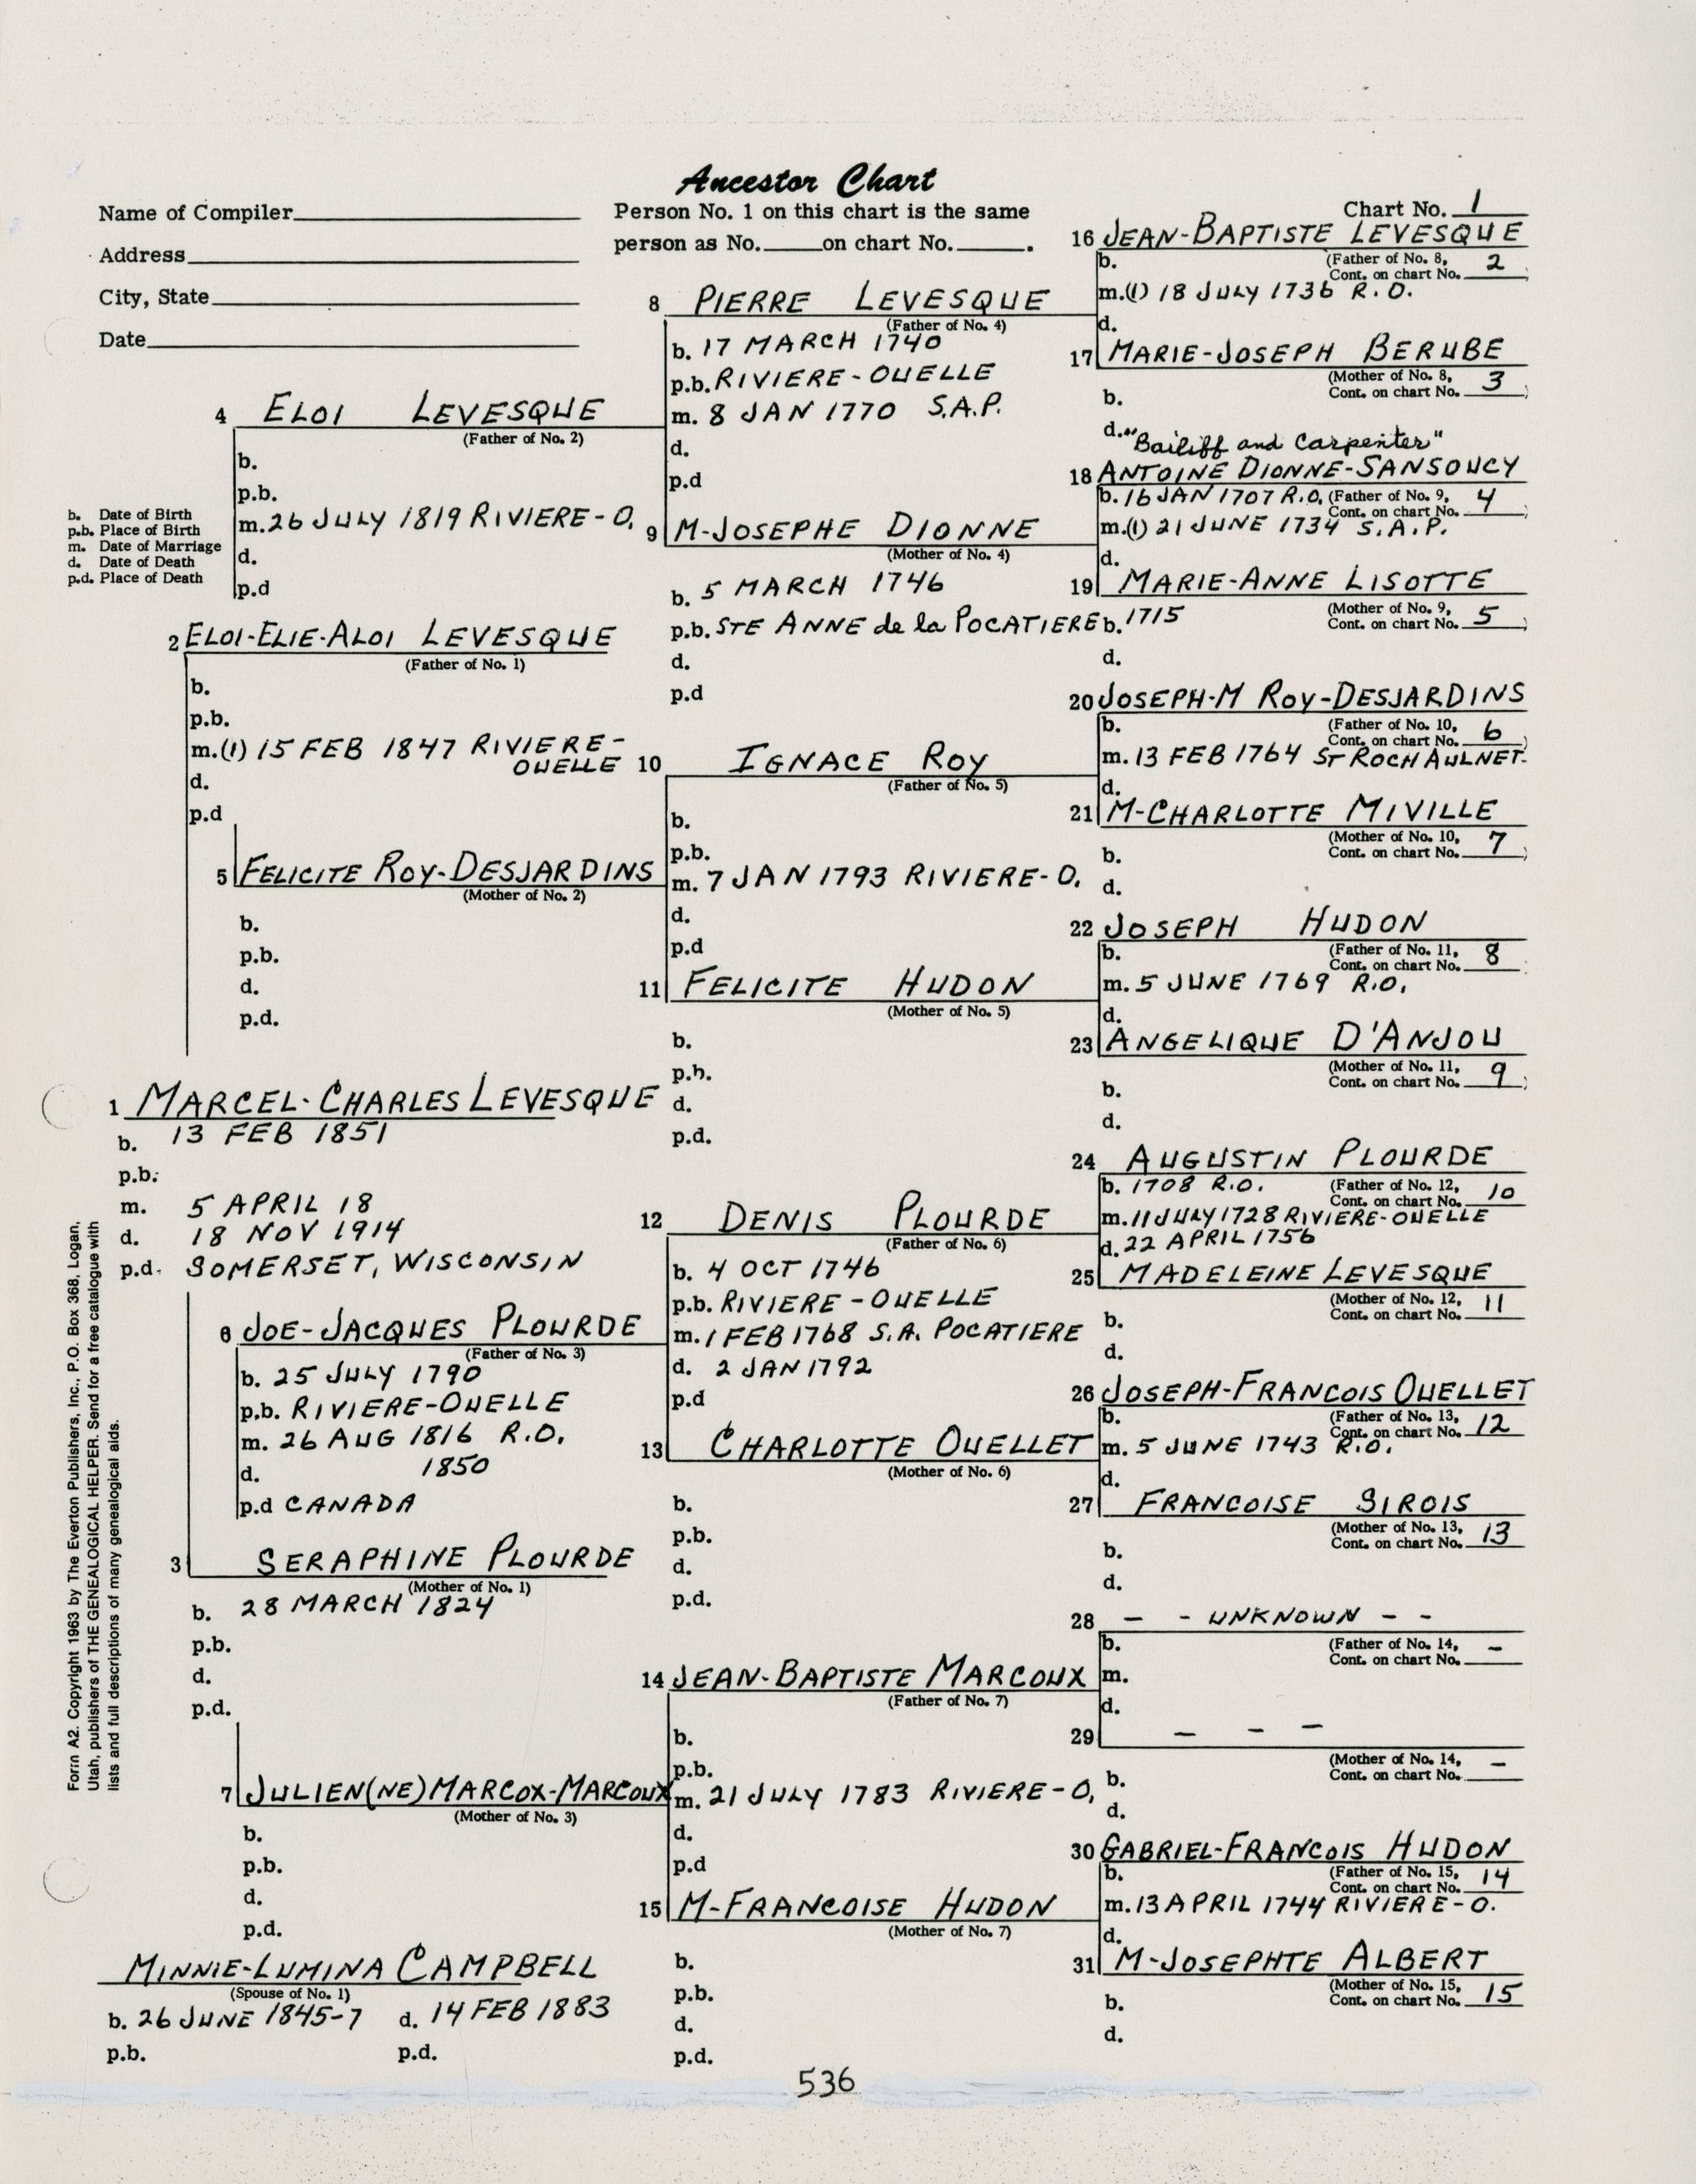 Ancestor Chart
Name of Compiler
Address
City, State
Date
Person No. 1 on this chart is the same
person as No. on chart No. .
Chart No. 1
16 JEAN-BAPTISTE LEVESQUE
b. (Father of No. 8,
Cont. on chart No. 2
m.(1) 18 JULY 1736 R.O.
d.
8 PIERRE LEVESQUE
(Father of No. 4)
b. 17 MARCH 1740
p.b. RIVIERE-OUELLE
m. 8 JAN 1770 S.A.P.
d.
p.d
17 MARIE-JOSEPH BERUBE
(Mother of No. 8,
Cont. on chart No. 3
b.
d.
4 ELOI LEVESQUE
(Father of No. 2)
b.
p.b.
m. 26 JULY 1819 RIVIERE-O.
d.
p.d
"Bailiff and Carpenter"
18 ANTOINE DIONNE-SANSOUCY
b. 16 JAN 1707 R.O. (Father of No. 9,
Cont. on chart No. 4
m.(1) 21 JUNE 1734 S.A.P.
d.
b. Date of Birth
p.b. Place of Birth
m. Date of Marriage
d. Date of Death
p.d. Place of Death
9 M-JOSEPHE DIONNE
(Mother of No. 4)
b. 5 MARCH 1746
p.b. STE ANNE de la POCATIERE
d.
p.d
19 MARIE-ANNE LISOTTE
(Mother of No. 9,
Cont. on chart No. 5
b. 1715
d.
2 ELOI-ELIE-ALOI LEVESQUE
(Father of No. 1)
b.
p.b.
m.(1) 15 FEB 1847 RIVIERE-
OUELLE
d.
p.d
20 JOSEPH-M ROY-DESJARDINS
b. (Father of No. 10,
Cont. on chart No. 6
m. 13 FEB 1764 ST ROCH AULNET.
d.
10 IGNACE ROY
(Father of No. 5)
b.
p.b.
m. 7 JAN 1793 RIVIERE-O.
d.
p.d
21 M-CHARLOTTE MIVILLE
(Mother of No. 10,
Cont. on chart No. 7
b.
d.
5 FELICITE ROY-DESJARDINS
(Mother of No. 2)
b.
p.b.
d.
p.d.
22 JOSEPH HUDON
b. (Father of No. 11,
Cont. on chart No. 8
m. 5 JUNE 1769 R.O.
d.
11 FELICITE HUDON
(Mother of No. 5)
b.
p.b.
d.
p.d.
23 ANGELIQUE D'ANJOU
(Mother of No. 11,
Cont. on chart No. 9
b.
d.
1 MARCEL-CHARLES LEVESQUE
b. 13 FEB 1851
p.b.
m. 5 APRIL 18
d. 18 NOV 1914
p.d. SOMERSET, WISCONSIN
24 AUGUSTIN PLOURDE
b. 1708 R.O. (Father of No. 12,
Cont. on chart No. 10
m. 11 JULY 1728 RIVIERE-OUELLE
d. 22 APRIL 1756
12 DENIS PLOURDE
(Father of No. 6)
b. 4 OCT 1746
p.b. RIVIERE-OUELLE
m. 1 FEB 1768 S.A. POCATIERE
d. 2 JAN 1792
p.d
25 MADELEINE LEVESQUE
(Mother of No. 12,
Cont. on chart No. 11
b.
d.
6 JOE-JACQUES PLOURDE
(Father of No. 3)
b. 25 JULY 1790
p.b. RIVIERE-OUELLE
m. 26 AUG 1816 R.O.
d. 1850
p.d CANADA
26 JOSEPH-FRANCOIS OUELLET
b. (Father of No. 13,
Cont. on chart No. 12
m. 5 JUNE 1743 R.O.
d.
13 CHARLOTTE OUELLET
(Mother of No. 6)
b.
p.b.
d.
p.d.
27 FRANCOISE SIROIS
(Mother of No. 13,
Cont. on chart No. 13
b.
d.
3 SERAPHINE PLOURDE
(Mother of No. 1)
b. 28 MARCH 1824
p.b.
d.
p.d.
28 - - UNKNOWN - -
b. (Father of No. 14,
Cont. on chart No. -
m.
d.
14 JEAN-BAPTISTE MARCOUX
(Father of No. 7)
b.
p.b.
m. 21 JULY 1783 RIVIERE-O.
d.
p.d
29 - - -
(Mother of No. 14,
Cont. on chart No. -
b.
d.
7 JULIEN(NE) MARCOX-MARCOUX
(Mother of No. 3)
b.
p.b.
d.
p.d.
30 GABRIEL-FRANCOIS HUDON
b. (Father of No. 15,
Cont. on chart No. 14
m. 13 APRIL 1744 RIVIERE-O.
d.
15 M-FRANCOISE HUDON
(Mother of No. 7)
b.
p.b.
d.
p.d.
31 M-JOSEPHTE ALBERT
(Mother of No. 15,
Cont. on chart No. 15
b.
d.
MINNIE-LUMINA CAMPBELL
(Spouse of No. 1)
b. 26 JUNE 1845-7 d. 14 FEB 1883
p.b. p.d.
536
Form A2. Copyright 1963 by The Everton Publishers, Inc., P.O. Box 368, Logan,
Utah, publishers of THE GENEALOGICAL HELPER. Send for a free catalogue with
lists and full descriptions of many genealogical aids.